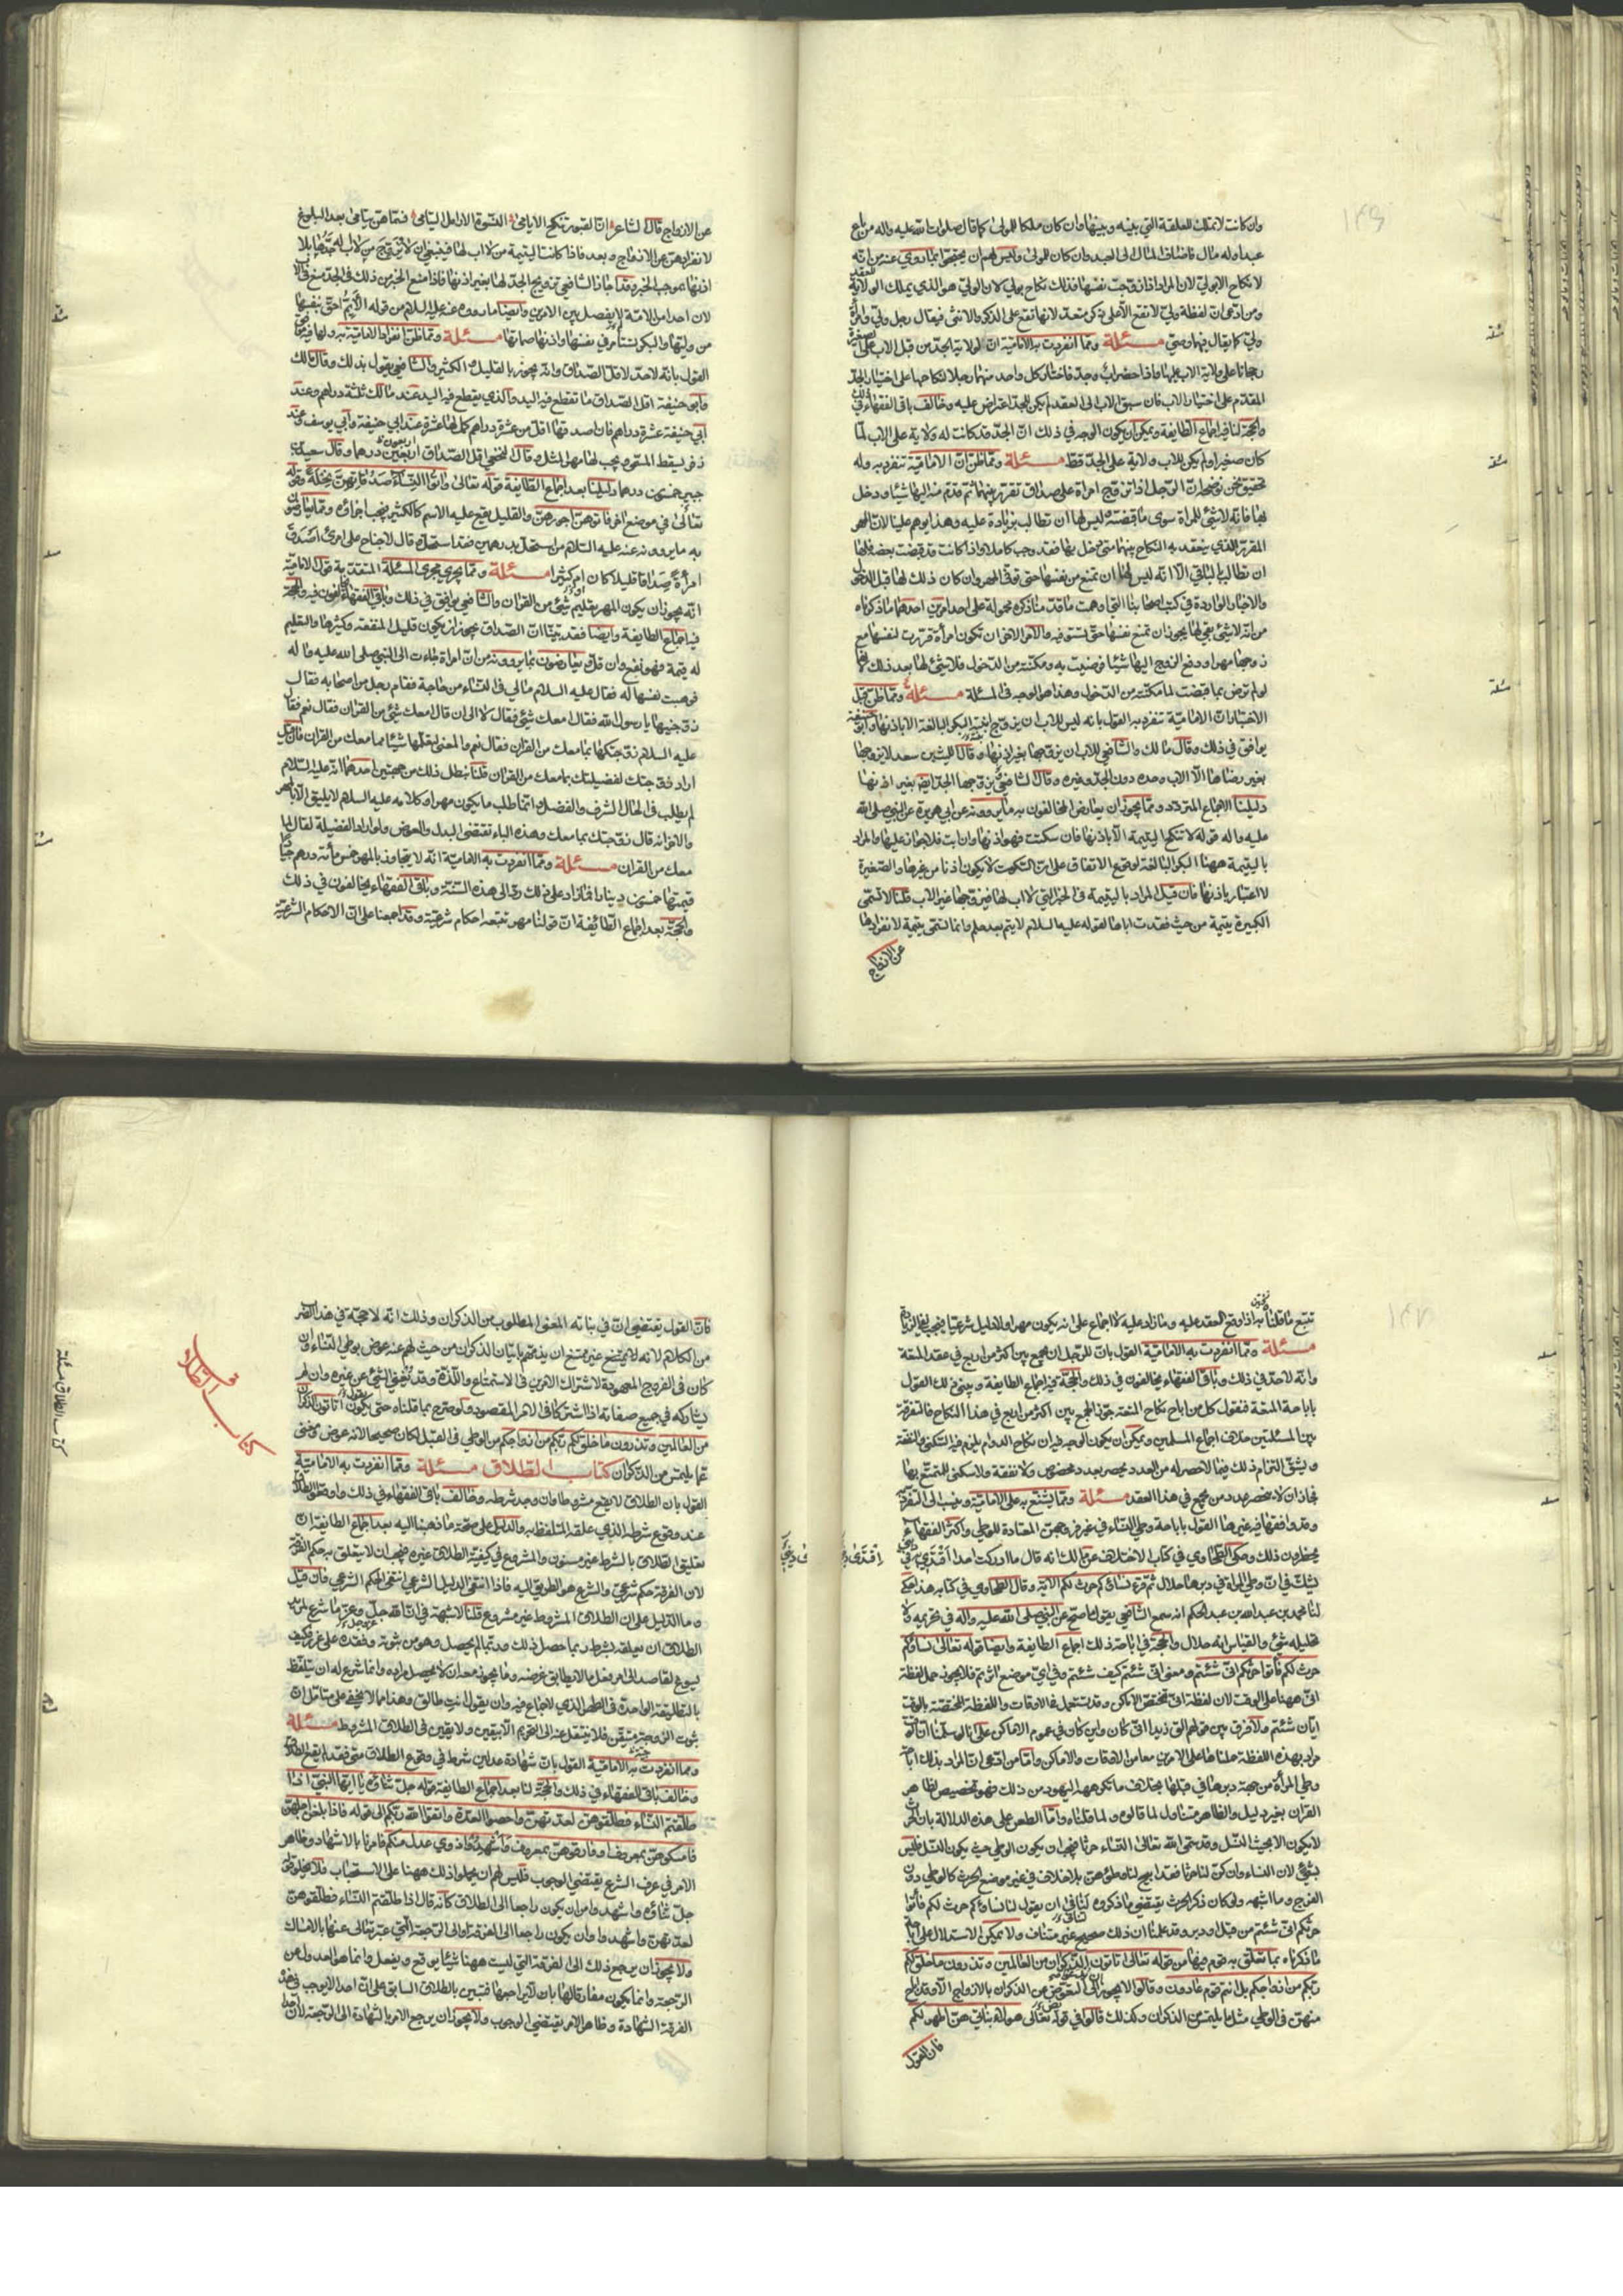 وان كانت لا تملك العلقة التي بينه وبينها وان كان ملكا للمولى كما قال صلوات الله عليه واله من باع
عبدا وله مال فاضاف المال الى العبد وان كان للمولى وليس لهم ان يحتجوا بما روي عنه من انه
لا نكاح الا بولي لان المراد اذا زوجت نفسها فذلك نكاح بولي لان الولي هو الذي يملك الولاية للعقد
ومن ادعى ان لفظة ولي لا تقع الا على ذكر متعد لانها تقع على الذكر والانثى فيقال رجل ولي وامرأة
ولي كما يقال فيهما وصي مسئلة ومما انفردت به الامامية ان لولاية الجد من قبل الاب على الصغيرة
رجحانا على ولاية الاب عليها واذا حضر اب وجد فاختار كل واحد منهما رجلا لنكاحها على اختيار الجد
المقدم على اختيار الاب فان سبق الاب الى العقد لم يكن للجد اعتراض عليه وخالف باقي الفقهاء في ذلك
والحجة لنا فيه اجماع الطايفة ويمكن ان يكون الوجه في ذلك ان الجد قد كانت له ولاية على الاب لما
كان صغيرا ولم يكن للاب ولاية على الجد قط مسئلة ومما ظن ان الامامية تنفرد به وله
تحقيق نحن نوضحه ان الرجل اذا تزوج امراة على صداق تقرر بينهما ثم قدم منه اليها شيئا ودخل
بها فانه لا شئ للمراة سوى ما قبضته وليس لها ان تطالب بزيادة عليه وهذا يوهم علينا لان المهر
المقرر الذي ينعقد به النكاح بينهما متى دخل بها فقد وجب كاملا واذا كانت قد قبضت بعضه فلها
ان تطالب بالباقي الا انه ليس لها ان تمنع من نفسها حتى توفى المهر وان كان ذلك لها قبل الدخول
والاخبار الواردة في كتب اصحابنا التي اوهمت ما قد منا ذكره محمولة على احد امرين احدهما ما ذكرناه
من انه لا شئ بقي لها يجوز ان تمنع نفسها حتى تستوفيه والامر الاخر ان تكون امرأة قررت لنفسها مع
زوجها مهرا ودفع الزوج اليها شيئا فرضيت به ومكنته من الدخول فلا شئ لها بعد ذلك لانها
لو لم ترض بما قبضت لما مكنته من الدخول وهذا هو الوجه في المسئلة مسئلة ومما ظن قبل
الاختبار ان الامامية تنفرد به القول بانه ليس للاب ان يزوج ابنته البكر البالغة الا باذنها وابو حنيفة
يوافق في ذلك وقال مالك والشافعي للاب ان يزوجها بغير اذنها وقال الليث بن سعد لا يزوجها
بغير رضاها الا الاب وحده دون الجد وغيره وقال الشافعي يزوجها الجد ايضا بغير اذنها
دليلنا الاجماع المتردد ومما يجوز ان يعارض المخالفون به ما يروونه عن ابي هريرة عن النبي صلى الله
عليه واله قوله لا تنكح اليتيمة الا باذنها فان سكتت فهو اذنها وان ابت فلا جواز عليها والمراد
باليتيمة ههنا البكر البالغة لوقوع الاتفاق على ان السكوت لا يكون اذنا من غيرها والصغيرة
لا اعتبار باذنها فان قيل المراد باليتيمة في الخبر التي لا اب لها فيزوجها غير الاب قلنا لا تسمى
الكبيرة يتيمة من حيث فقدت اباها لقوله عليه السلام لا يتم بعد حلم وانما تسمى يتيمة لانفرادها
عن الازواج
عن الازواج قال الشاعر ان القبور تنكح الايامى النسوة الارامل اليتامى فسماهن يتامى بعد البلوغ
لانفرادهن عن الازواج وبعد فاذا كانت اليتيمة من لا اب لها فينبغي ان لا تزوج من لا اب له جدها بلا
اذنها بموجب الخبر وقد اجاز الشافعي تزويج الجد لها بغير اذنها فاذا منع الخبر من ذلك في الجد منع في الاب
لان احدا من الامة لم يفصل بين الامرين وايضا ما رووه عنه عليه السلام من قوله الايم احق بنفسها
من وليها والبكر تستأمر في نفسها واذنها صماتها مسئلة ومما ظن انفراد الامامية به
القول بانه لا حد لاقل الصداق وانه يجوز بالقليل والكثير والشافعي يقول بذلك وقال مالك
وابو حنيفة اقل الصداق ما تقطع فيه اليد والذي يقطع فيه اليد عند مالك ثلثة دراهم وعند
ابي حنيفة عشرة دراهم فان اصدقها اقل من عشرة دراهم كمل لها عشرة عند ابي حنيفة وابي يوسف وعند
زفر يسقط المسمى ويجب لها مهر المثل وقال النخعي اقل الصداق اربعون درهما وقال سعيد بن
جبير خمسون درهما دليلنا بعد اجماع الطايفة قوله تعالى واتوا النساء صدقاتهن نحلة وقوله
تعالى في موضع اخر فاتوهن اجورهن والقليل يقع عليه الاسم كالكثير فيجب اجزاؤه ومما يعارضون
به ما يروونه عنه عليه السلام من استحل بدرهمين فقد استحل وقوله قال لا جناح على امرئ اصدق
امرأة صداقا قليلا كان او كثيرا مسئلة ومما يجري مجرى المسئلة المتقدمة قول الامامية
انه يجوز ان يكون المهر تعليم شئ من القران والشافعي يوافق في ذلك وباقي الفقهاء يخالفون فيه والحجة
فيه اجماع الطايفة وايضا فقد بينا ان الصداق يجوز ان يكون قليل المنفعة وكثيرها والتعليم
له قيمة فهو نفع وان قل ويعارضون بما يروونه من ان امراة جاءت الى النبي صلى الله عليه واله
فوهبت نفسها له فقال عليه السلام مالي في النساء من حاجة فقام رجل من اصحابه فقال
زوجنيها يا رسول الله فقال امعك شئ فقال لا الى ان قال امعك شئ من القران فقال نعم فقال
عليه السلام زوجتكها بما معك من القران فقال نعم والمعنى يعلمها شيئا مما معك من القران فان قيل
اراد زوجتك لفضيلتك بما معك من القران قلنا يبطل ذلك من جهتين احدهما انه عليه السلام
لم يطلب في الحال الشرف والفضل وانما طلب ما يكون مهرا وكلامه عليه السلام لا يليق الا بالمهر
والاخر انه قال زوجتك بما معك وهذه الباء تقتضي البدل والعوض ولو اراد الفضيلة لقال لما
معك من القران مسئلة ومما انفردت به الامامية انه لا يتجاوز بالمهر خمس مأئة درهم جيادا
قيمتها خمسون دينارا فما زاد على ذلك رد الى هذه السنة وباقي الفقهاء يخالفون في ذلك
والحجة بعد اجماع الطائفة ان قولنا مهر تتبعه احكام شرعية وقد اجمعنا على ان الاحكام الشرعية
تتبع ما قلنا به اذا وقع العقد عليه وما زاد عليه لا اجماع على انه يكون مهرا ولا دليل شرعيا فيجب نفي الزيادة
مسئلة ومما انفردت به الامامية القول بان للرجل ان يجمع بين اكثر من اربع في عقد المتعة
وانه لا حد في ذلك وباقي الفقهاء يخالفون في ذلك والحجة فيه اجماع الطايفة ويبنى ذلك القول
باباحة المتعة فنقول كل من اباح نكاح المتعة جوز الجمع بين اكثر من اربع في هذا النكاح فالتفرقة
بين المسئلتين خلاف اجماع المسلمين ويمكن ان يكون الوجه فيه ان نكاح الدوام يلزم فيه السكنى والنفقة
ويشق التزام ذلك فيما لا حصر له من العدد فحصر بعدد مخصوص ولا نفقة ولا سكنى للمتمتع بها
فجاز ان لا ينحصر عدد من يجمع في هذا العقد مسئلة ومما يشنع به على الامامية وينسب الى التفرد به
وقد وافقها فيه غيرها القول باباحة وطي النساء في غير فروجهن المعتادة للوطي واكثر الفقهاء
يحظرون ذلك وحكى الطحاوي في كتاب الاختلاف عن مالك انه قال ما ادركت احدا اقتدي به في ديني
يشك في ان وطي المراة في دبرها حلال ثم قرء نساؤكم حرث لكم الاية وقال الطحاوي في كتابه هذا حكى
لنا محمد بن عبد الله بن عبد الحكم انه سمع الشافعي يقول ما صح عن النبي صلى الله عليه واله في تحريمه ولا
تحليله شئ والقياس انه حلال والحجة في اباحة ذلك اجماع الطايفة وايضا قوله تعالى نساؤكم
حرث لكم فاتوا حرثكم انى شئتم ومعنى انى شئتم كيف شئتم وفي اي موضع اثرتم فلا يجوز حمل لفظة
انى ههنا على الوقت لان لفظة انى تختص الاماكن وقد تستعمل في الاوقات واللفظة المختصة بالوقت
ايان شئتم ولا فرق بين قولهم الق زيدا انى كان واين كان في عموم الاماكن
مراد بهذه اللفظة حملناها على الامرين معا من الاوقات والاماكن واما من ادعى ان المراد بذلك اباحة
وطي المرأة من جهة دبرها في قبلها بخلاف ما تكرهه اليهود من ذلك فهو تخصيص لظاهر
القران بغير دليل والظاهر متناول لما قالوه ولما قلناه واما الطعن على هذه الدلالة بان الحرث
لا يكون الا بحيث النسل وقد سمى الله تعالى النساء حرثا فيجب ان يكون الوطي حيث يكون النسل فليس
بشئ لان النساء وان كن لنا حرثا فقد ابيح لنا وطؤهن بلا خلاف في غير موضع الحرث كالوطي دون
الفرج وما اشبهه ولو كان ذكر الحرث يقتضي ما ذكروه لتنافى ان يقول لنا نساؤكم حرث لكم فاتوا
حرثكم انى شئتم من قبل ودبر وقد علمنا ان ذلك صحيح غير متناف ولا يمكن الاستدلال على اباحة
ما ذكرناه بما تعلق به قوم فيها من قوله تعالى اتاتون الذكران من العالمين وتذرون ما خلق لكم
ربكم من ازواجكم بل انتم قوم عادون وقالوا لا يجوز ان يدعوهم الى التعوض عن الذكران بالازواج الا وقد اباح
منهن في الوطي مثل ما يلتمس من الذكران وكذلك قالوا في قوله تعالى هؤلاء بناتي هن اطهر لكم
فان القول
فان القول يقتضي ان في بناته المعنى المطلوب من الذكران وذلك انه لا حجة في هذا الضرب
من الكلام لانه لا يمتنع غير ممتنع ان يذمهم باتيان الذكران من حيث لهم عنه عوض بوطي النساء وان
كان في الفروج المعهودة لاشتراك الامرين في الاستمتاع واللذة وقد يغني الشئ عن غيره وان لم
يشاركه في جميع صفاته اذا اشتركا في الامر المقصود ولو صرح بما قلناه حتى يقول اتاتون الذكران
من العالمين وتذرون ما خلق لكم ربكم من ازواجكم من الوطي في القبل لكان صحيحا لانه عوض ومغنى
عما يلتمس من الذكران كتاب الطلاق مسئلة ومما انفردت به الامامية
القول بان الطلاق لا يقع مشروطا وان وجد شرطه وخالف باقي الفقهاء في ذلك واوقعوا الطلاق
عند وقوع شرطه الذي علقه المتلفظ به والدليل على صحة ما ذهبنا اليه بعد اجماع الطايفة ان
تعليق الطلاق بالشرط غير مسنون والمشروع في كيفية الطلاق غيره فيجب ان لا يتعلق به حكم الفرقة
لان الفرقة حكم شرعي والشرع هو الطريق اليه فاذا انتفى الدليل الشرعي انتفى الحكم الشرعي فان قيل
وما الدليل على ان الطلاق المشروط غير مشروع قلنا لا شبهة في ان الله جل وعز ما شرع لمريد
الطلاق ان يعلقه بشرط ربما حصل ذلك وربما لم يحصل وهو من بثوثه وفقده على غرر وكيف
يسوغ لقاصد الى امر فعل ما لا يطابق غرضه وما يجوز معه ان لا يحصل مراده وانما شرع له ان يتلفظ
بالتطليقة الواحدة في الطهر الذي لا جماع فيه وان يقول انت طالق وهذا مما لا يخفى على متامل ان
ثبوت الزوجية متيقن فلا ينتقل عنه الى التحريم الا بيقين ولا يقين في الطلاق المشروط مسئلة
ومما انفردت به الامامية القول بان شهادة عدلين شرط في وقوع الطلاق متى فقد لم يقع الطلاق
وخالف باقي الفقهاء في ذلك والحجة لنا بعد اجماع الطايفة قوله جل ثناؤه يا ايها النبي اذا
طلقتم النساء فطلقوهن لعدتهن واحصوا العدة واتقوا الله ربكم الى قوله فاذا بلغن اجلهن
فامسكوهن بمعروف او فارقوهن بمعروف واشهدوا ذوي عدل منكم فامرنا بالاشهاد وظاهر
الامر في عرف الشرع يقتضي الوجوب فليس لهم ان يحملوا ذلك ههنا على الاستحباب فلا يخلو قوله
جل ثناؤه واشهدوا من ان يكون راجعا الى الطلاق كأنه قال اذا طلقتم النساء فطلقوهن
لعدتهن واشهدوا وان يكون راجعا الى الفرقة او الى الرجعة التي عبر تعالى عنها بالامساك
ولا يجوز ان يرجع ذلك الى الفرقة التي ليست ههنا شيئا يوقع ويفعل وانما هو العدول عن
الرجعة وانما يكون مفارقا لها بان لا يراجعها فتبين بالطلاق السابق على ان احدا لا يوجب في هذه
الفرقة الشهادة وظاهر الامر يقتضي الوجوب ولا يجوز ان يرجع الامر بالشهادة الى الرجعة لان احدا
كتاب الطلاق